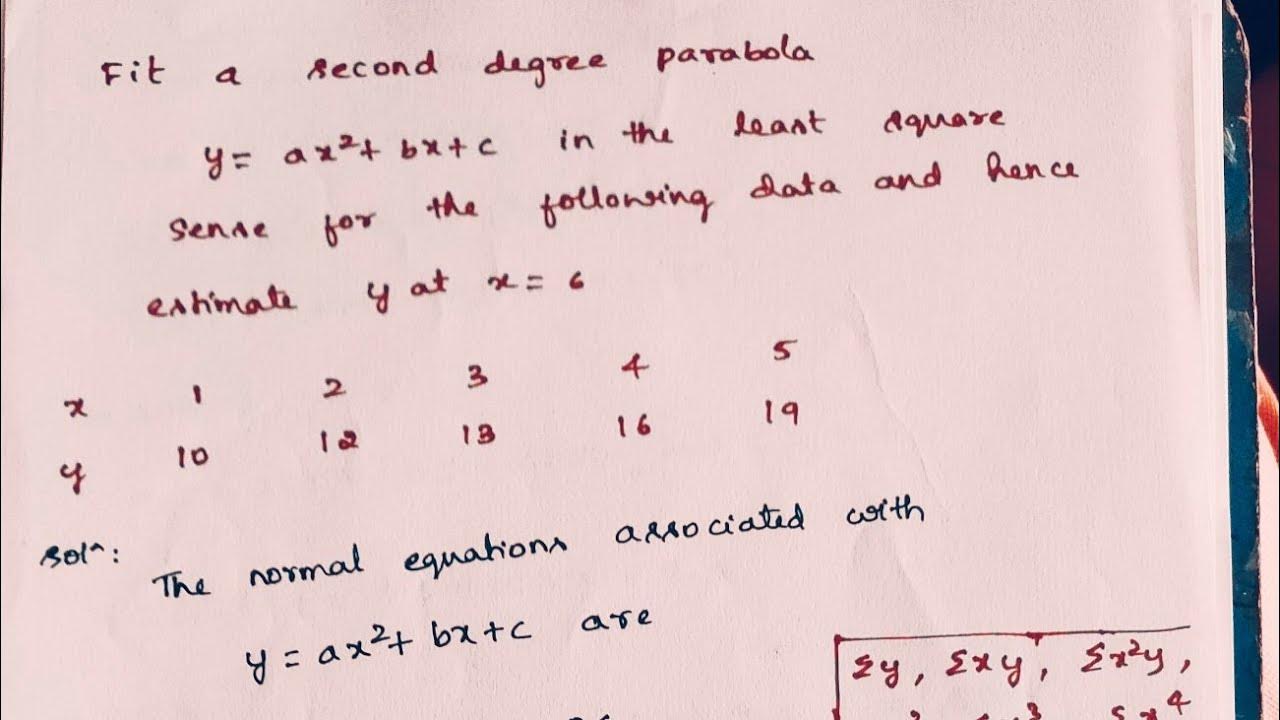 Fit a second degree parabola
y = ax²+ bx+c in the least square
sense for the following data and hence
estimate y at x = 6
x 1 2 3 4 5
y 10 12 13 16 19
Solⁿ:
The normal equations associated with
y = ax²+ bx+c are
Σy, Σxy, Σx²y,